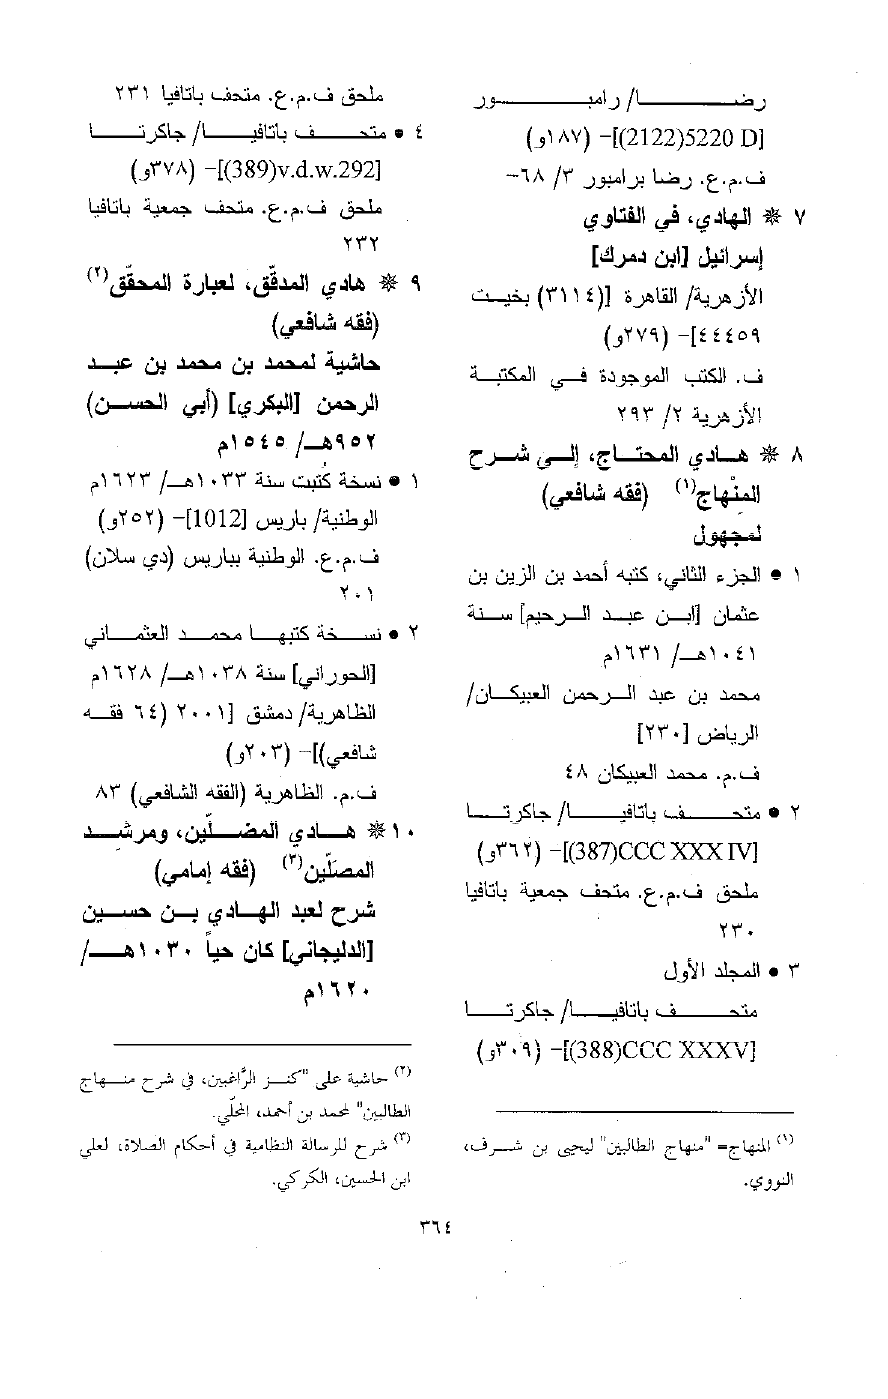 رضــــا/ رامبــــور
[5220 D(2122)]– (١٨٧و)
ف.م.ع. رضا برامبور ٣/ ٦٨–
٧ ❋ الهادي، في الفتاوي
إسرائيل [ابن دمرك]
الأزهرية/ القاهرة [(٣١١٤) بخيــت
٤٤٤٥٩]– (٢٧٩و)
ف. الكتب الموجودة فــي المكتبــة
الأزهرية ٢/ ٢٩٣
٨ ❋ هــادي المحتــاج، إلــى شــرح
المِنْهاج(١) (فقه شافعي)
لمجهول
١ • الجزء الثاني، كتبه أحمد بن الزين بن
عثمان [ابــن عبــد الــرحيم] ســنة
١٠٤١هــ/ ١٦٣١م
محمد بن عبد الــرحمن العبيكــان/
الرياض [٢٣٠]
ف.م. محمد العبيكان ٤٨
٢ • متحــف باتافيــا/ جاكرتــا
[CCC XXX IV(387)]– (٣٦٢و)
ملحق ف.م.ع. متحف جمعية باتافيا
٢٣٠
٣ • المجلد الأول
متحــف باتافيــا/ جاكرتــا
[CCC XXXV(388)]– (٣٠٩و)
(١) المنهاج= "منهاج الطالبين" ليحيى بن شــرف،
النووي.
ملحق ف.م.ع. متحف باتافيا ٢٣١
٤ • متحــف باتافيــا/ جاكرتــا
[v.d.w.292(389)]– (٣٧٨و)
ملحق ف.م.ع. متحف جمعية باتافيا
٢٣٢
٩ ❋ هادي المدقّق، لعبارة المحقّق(٢)
(فقه شافعي)
حاشية لمحمد بن محمد بن عبــد
الرحمن [البكري] (أبي الحســن)
٩٥٢هــ/ ١٥٤٥م
١ • نسخة كُتبت سنة ١٠٣٣هــ/ ١٦٢٣م
الوطنية/ باريس [1012]– (٢٥٢و)
ف.م.ع. الوطنية بباريس (دي سلان)
٢٠١
٢ • نســخة كتبهــا محمــد العثمــاني
[الحوراني] سنة ١٠٣٨هــ/ ١٦٢٨م
الظاهرية/ دمشق [٢٠٠١ (٦٤ فقــه
شافعي)]– (٢٠٣و)
ف.م. الظاهرية (الفقه الشافعي) ٨٣
١٠ ❋ هــادي المضــلّين، ومرشِــد
المصَلّين(٣) (فقه إمامي)
شرح لعبد الهــادي بــن حســين
[الدليجاني] كان حياً ١٠٣٠هــ/
١٦٢٠م
(٢) حاشية على "كنــز الرَّاغبين، في شرح منــهاج
الطالبين" لمحمد بن أحمد، المحلّي.
(٣) شرح للرسالة النظامية في أحكام الصلاة، لعلي
ابن الحسين، الكركي.
٣٦٤